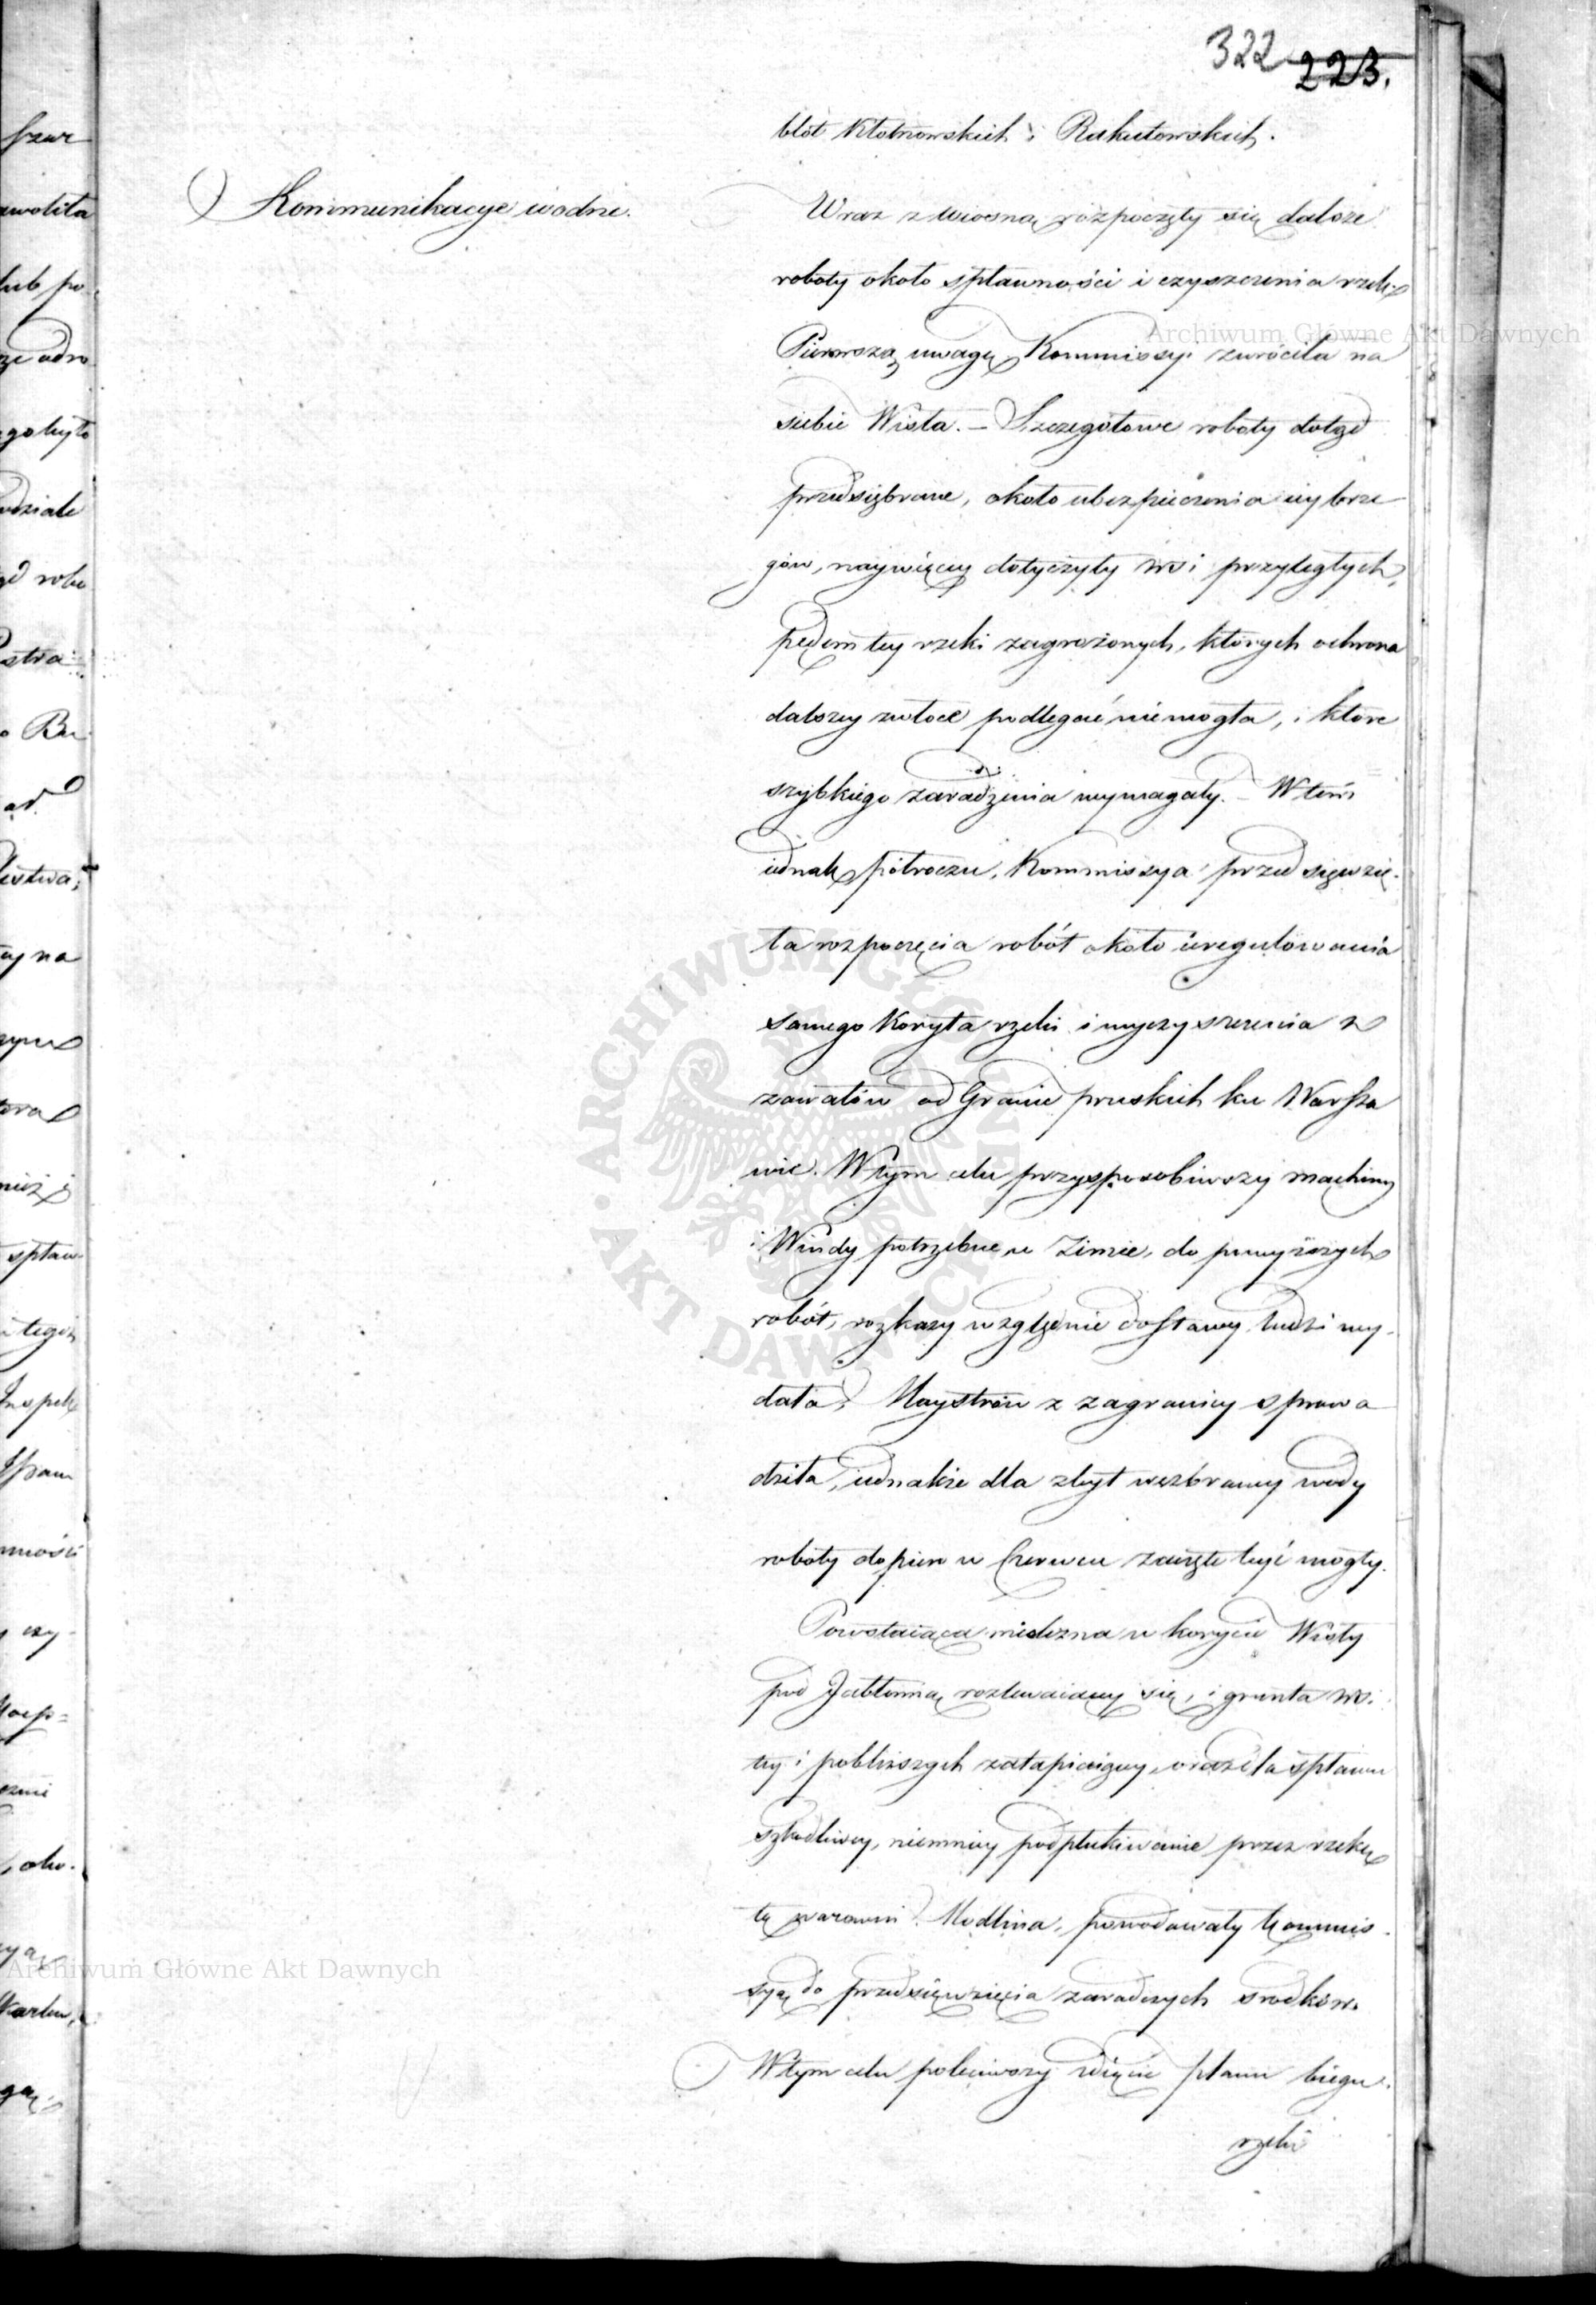 322 223.
błot Kłotnowskich i Rakutowskich.
Kommunikacye wodne.
Wraz z wiosną rozpoczęły się dalsze
roboty około spławności i czyszczenia rzek.
Pierwszą uwagę Kommissyi zwróciła na
siebie Wisła. – Szczegółowe roboty dotąd
przedsiębrane, około ubezpieczenia wybrze
gów, naywięcey dotyczyły wsi przyległych,
pędem tey rzeki zagrożonych, których ochrona
dalszey zwłoce podlegać niemogła, i które
szybkiego zaradzenia wymagały. – W tem
iednak półroczu, Kommissya przedsięwzię-
ła rozpoczęcia robót około uregulowania
samego Koryta rzeki i wyczyszczenia z
zawałów od Granic pruskich ku Warsza
wie. W tym celu przysposobiwszy machiny
i Windy potrzebne w Zimie, do powyższych
robót, rozkazy względnie dostawy ludzi wy-
dała, Maystrów z zagranicy sprowa
dziła, iednakże dla zbyt wezbraney wody
roboty dopiero w Czerwcu zaczęte być mogły.
Powstaiąca mielizna w korycie Wisły
pod Jabłonną rozlewaiącey się, i grunta wsi
tey i pobliższych zatapiaiącey, oraz dla spławu
szkodliwey, niemniey podpłukiwanie przez rzekę
tę warowni Modlina, powodowały Kommis-
syą do przedsięwzięcia zaradczych srodków.
W tym celu poleciwszy zdięcie planu biegu
rzeki
Archiwum Główne Akt Dawnych
Archiwum Główne Akt Dawnych
ARCHIWUM GŁÓWNE AKT DAWNYCH